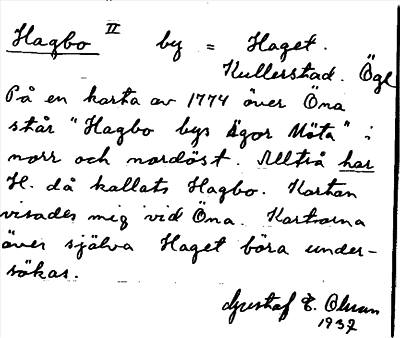 Hagbo II by = Haget.
Kullerstad. Ögl
På en karta av 1774 över Öna
står "Hagbo bys ägor Möta" i
norr och nordöst. Alltså har
H. då kallats Hagbo. Kartan
visades mig vid Öna. Kartorna
över själva Haget böra under-
sökas.
Gustaf E. Olsson
1937